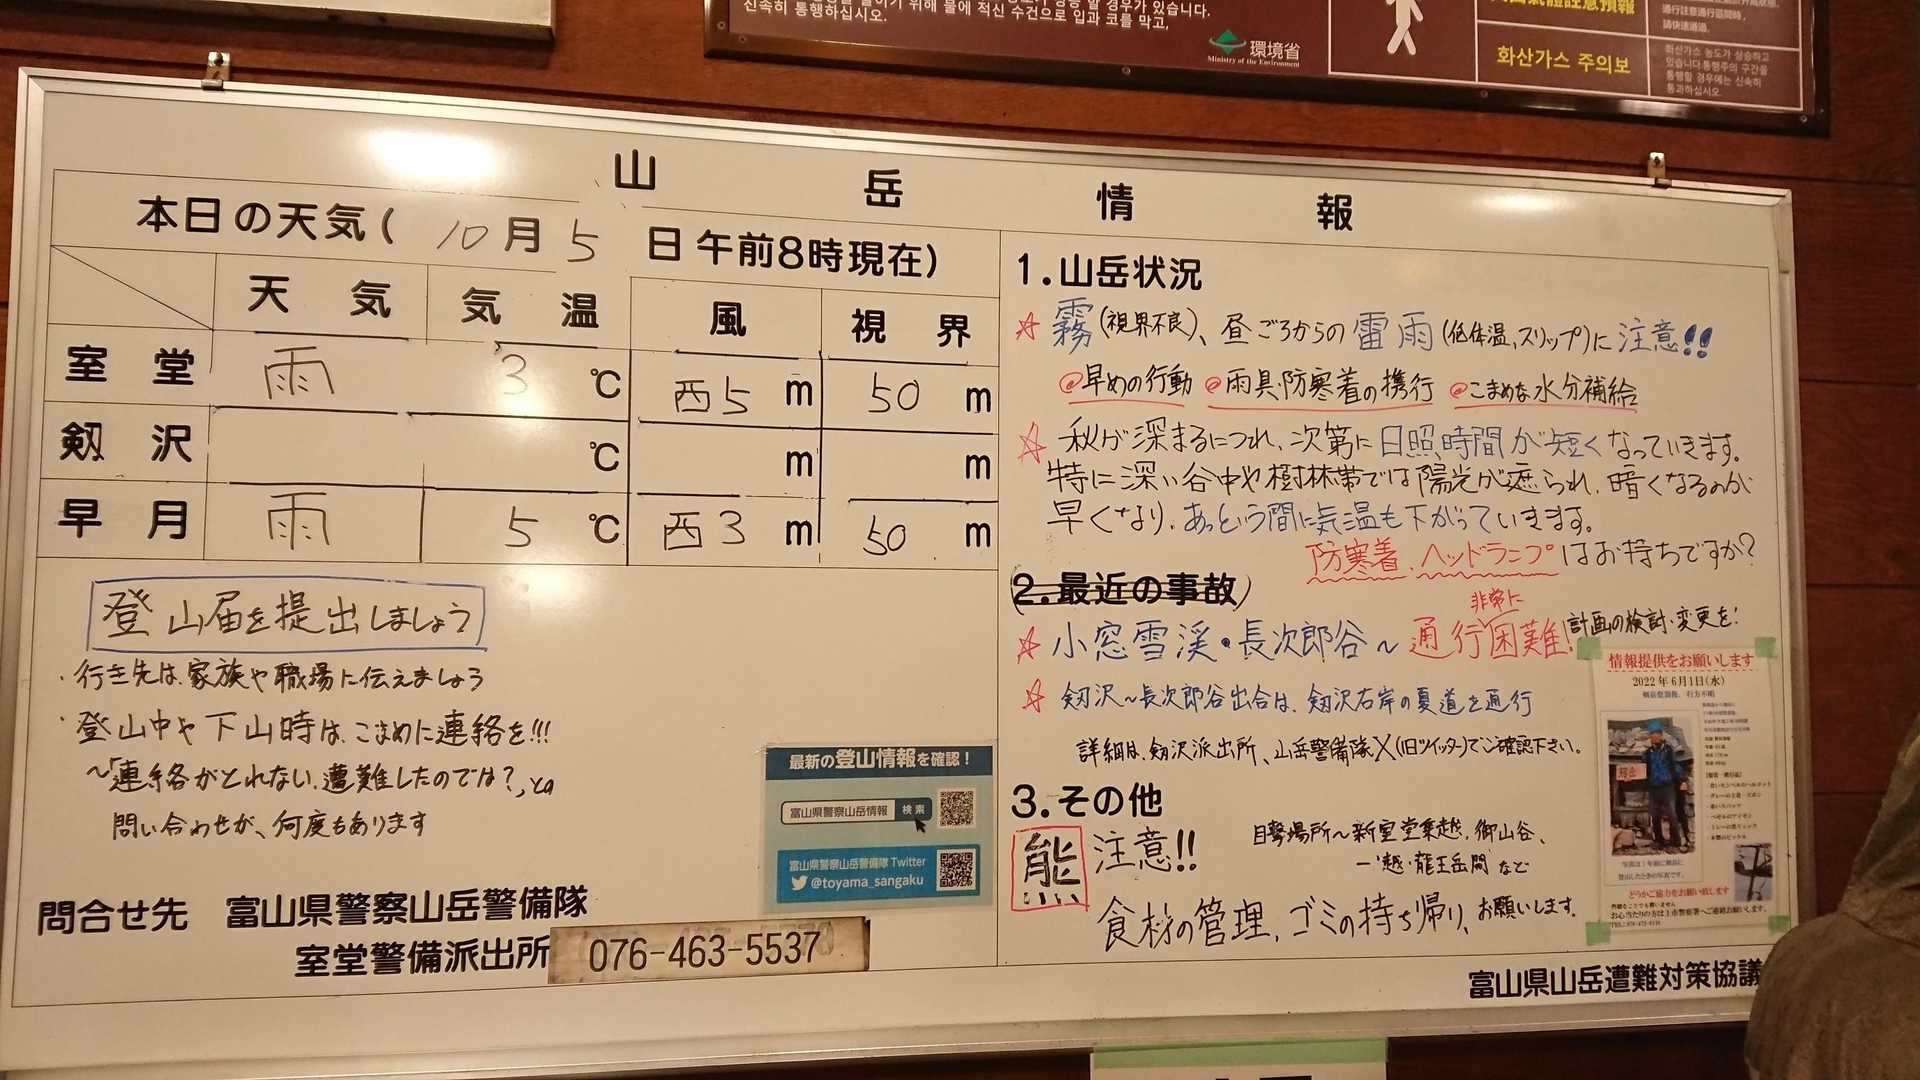 신속히 통행하십시오.
위해 물에 적신 수건으로 입과 코를 막고,
環境省
Ministry of the Environment
화산가스 주의보
화산가스 농도가 상승하고
있습니다.통행주의 구간을
통행할 경우에는 신속히
통과하십시오.
山岳情報
本日の天気( 10月5日午前8時現在)
天気 気温 風 視界
室堂 雨 3℃ 西5m 50m
剱沢 ℃ m m
早月 雨 5℃ 西3m 50m
登山届を提出しましょう
・行き先は、家族や職場に伝えましょう
・登山中や下山時は、こまめに連絡を!!!
~「連絡がとれない、遭難したのでは?」との
問い合わせが、何度もあります
最新の登山情報を確認!
富山県警察山岳情報 検索
富山県警察山岳警備隊 Twitter
@toyama_sangaku
問合せ先 富山県警察山岳警備隊
室堂警備派出所 076-463-5537
1.山岳状況
☆霧(視界不良)、昼ごろからの雷雨(低体温、スリップ)に注意!!
@早めの行動 @雨具・防寒着の携行 @こまめな水分補給
☆秋が深まるにつれ、次第に日照時間が短くなっていきます。
特に深い谷中や樹林帯では陽光が遮られ、暗くなるのが
早くなり、あっという間に気温も下がっていきます。
防寒着、ヘッドランプはお持ちですか?
(2.最近の事故)
☆小窓雪渓・長次郎谷~通行非常に困難!計画の検討・変更を!
☆剱沢~長次郎谷出合は、剱沢右岸の夏道を通行
詳細は、剱沢派出所、山岳警備隊X(旧ツイッター)でご確認下さい。
3.その他
熊注意!! 目撃場所~新室堂乗越、御山谷、
一ノ越・龍王岳間 など
食材の管理、ゴミの持ち帰り、お願いします。
情報提供をお願いします
2022年6月1日(水)
写真は1年前に剱岳に
登山したときの写真です。
どうかご協力をお願い致します
お心当たりの方は上市警察署へご連絡お願いします。
富山県山岳遭難対策協議